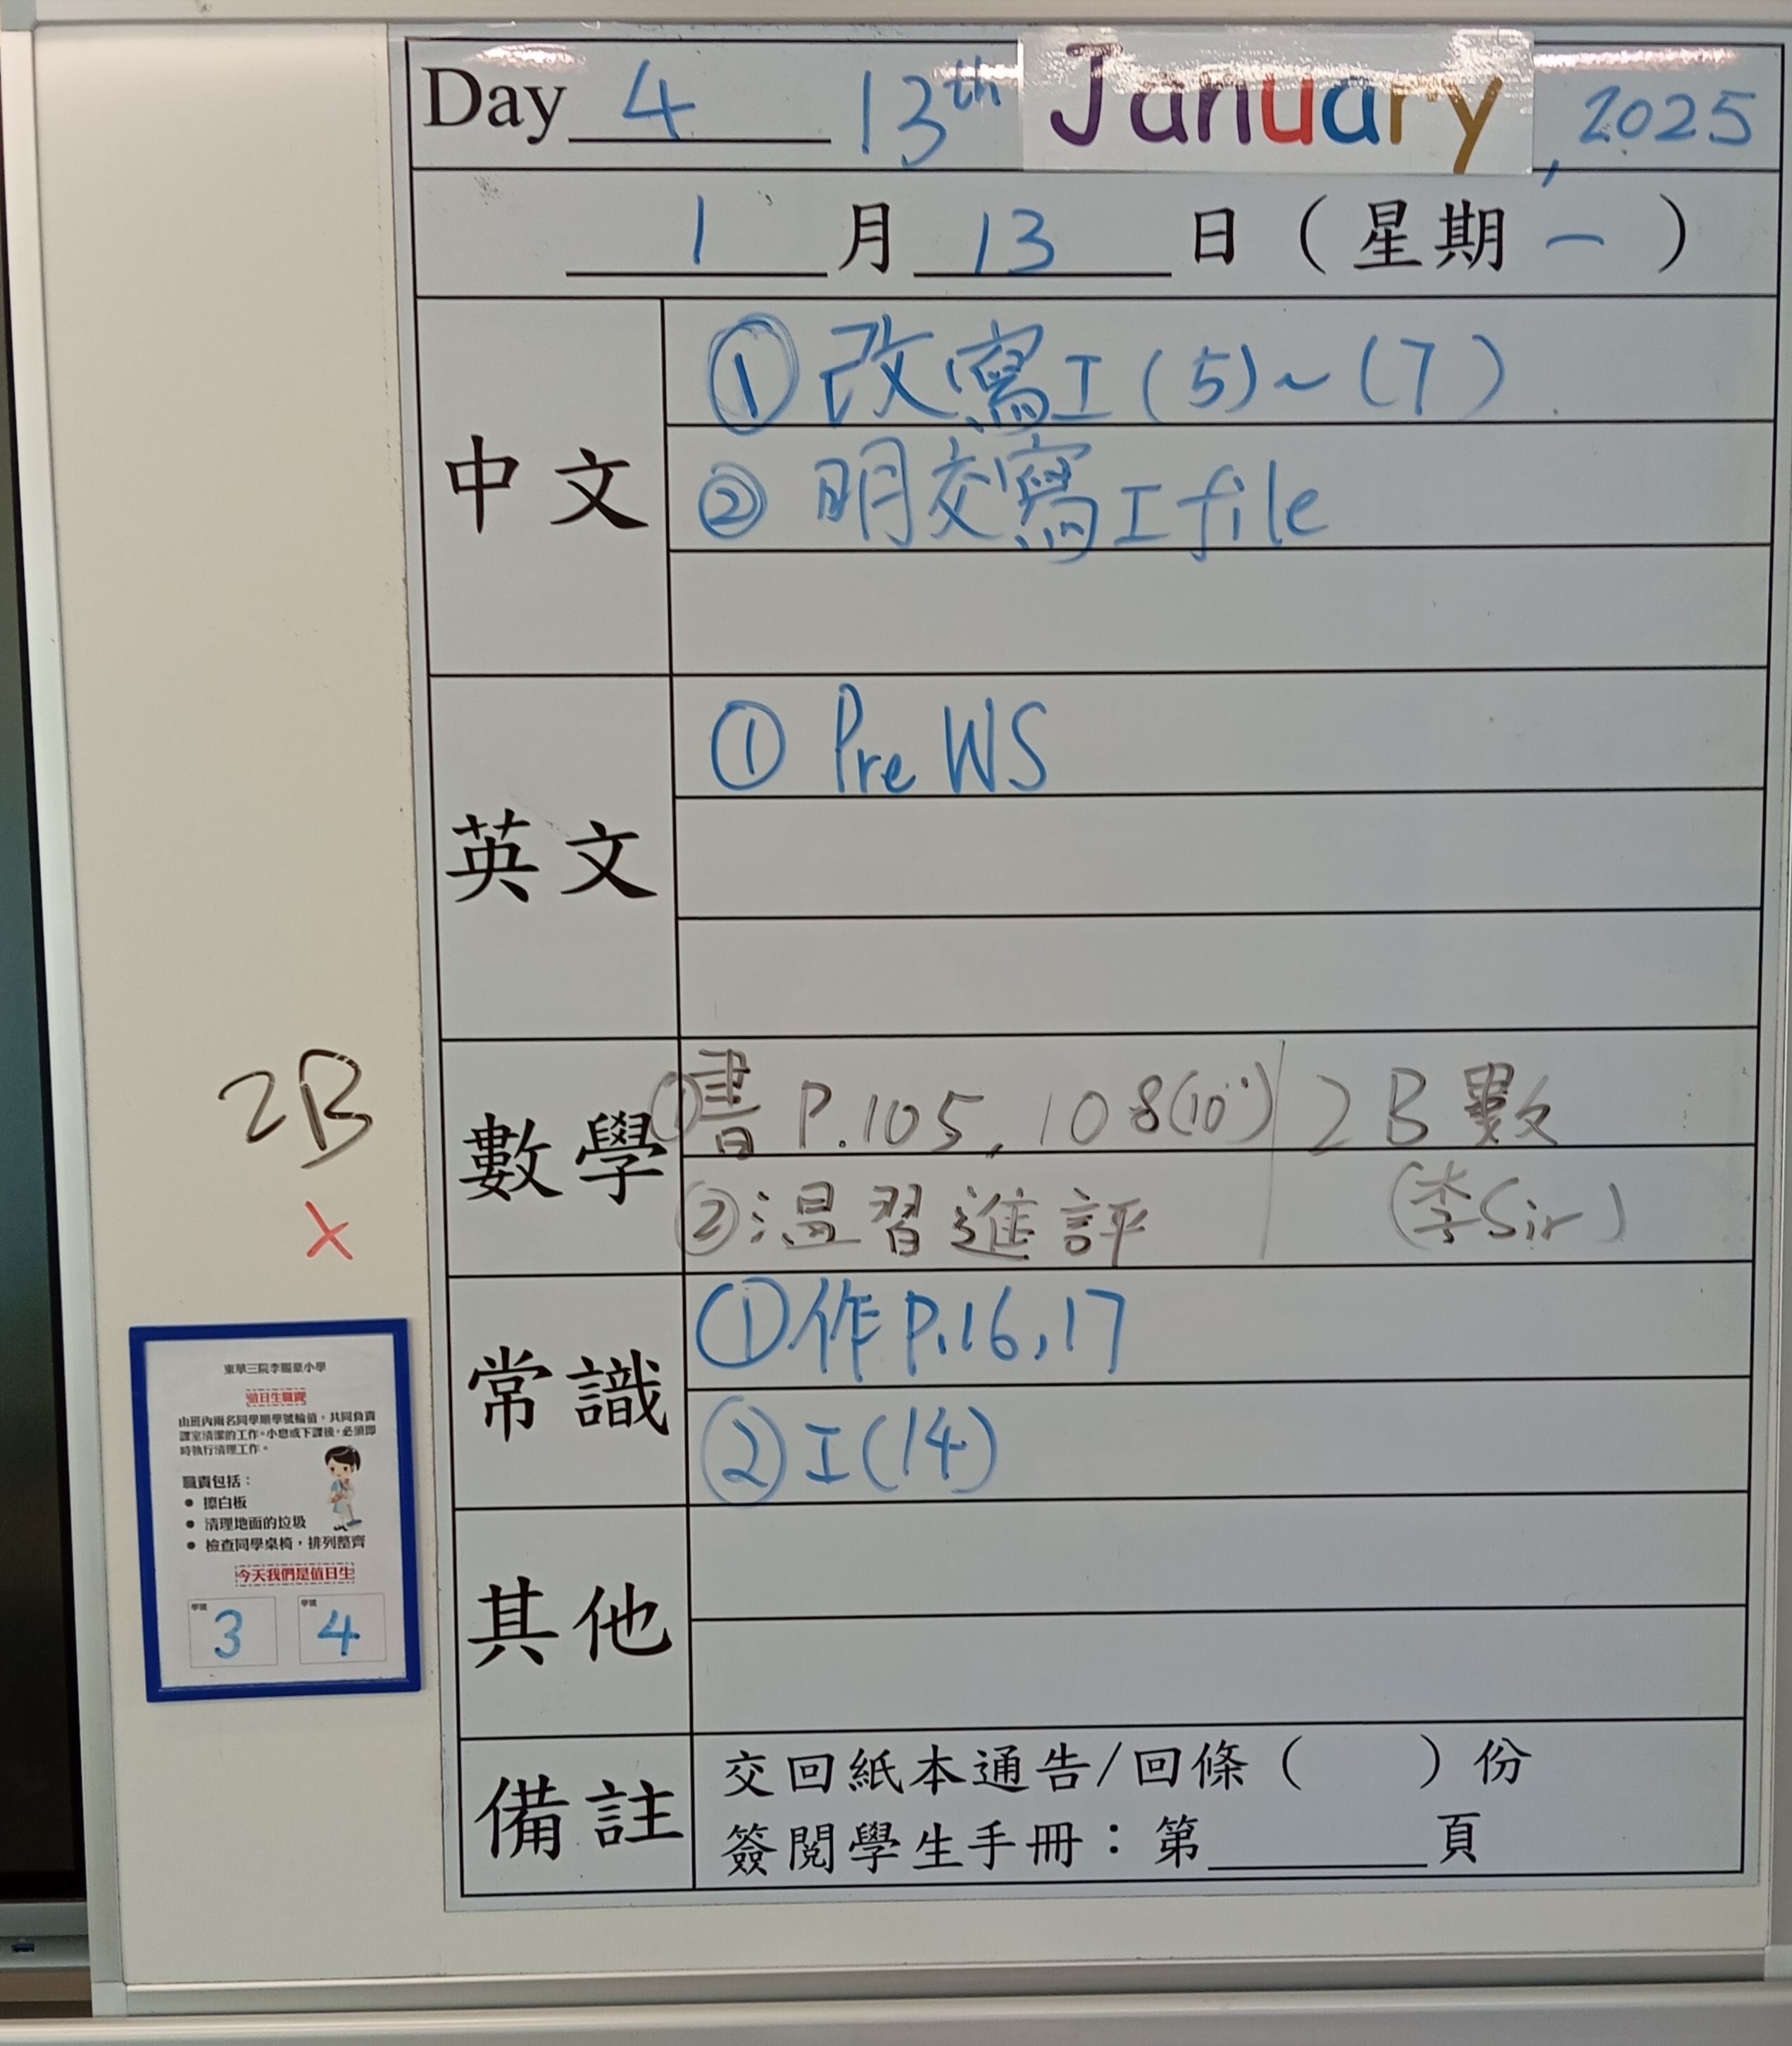 Day 4 13th January, 2025
1 月 13 日 ( 星期 一 )
中文
① 改寫工 (5) ~ (7)
② 明交寫工 file
英文
① Pre WS
數學
① 書 P.105, 108 (10) 2B 數
② 溫習進評 (李 Sir)
常識
① 作 P.16, 17
② 工 (14)
其他
備註
交回紙本通告/回條 ( ) 份
簽閱學生手冊：第 頁
2B
X
東華三院李賜豪小學
值日生職責
由班內兩名同學順學號輪值，共同負責
課室清潔的工作。小息或下課後，必須即
時執行清理工作。
職責包括：
• 擦白板
• 清理地面的垃圾
• 檢查同學桌椅，排列整齊
今天我們是值日生
學號 學號
3 4